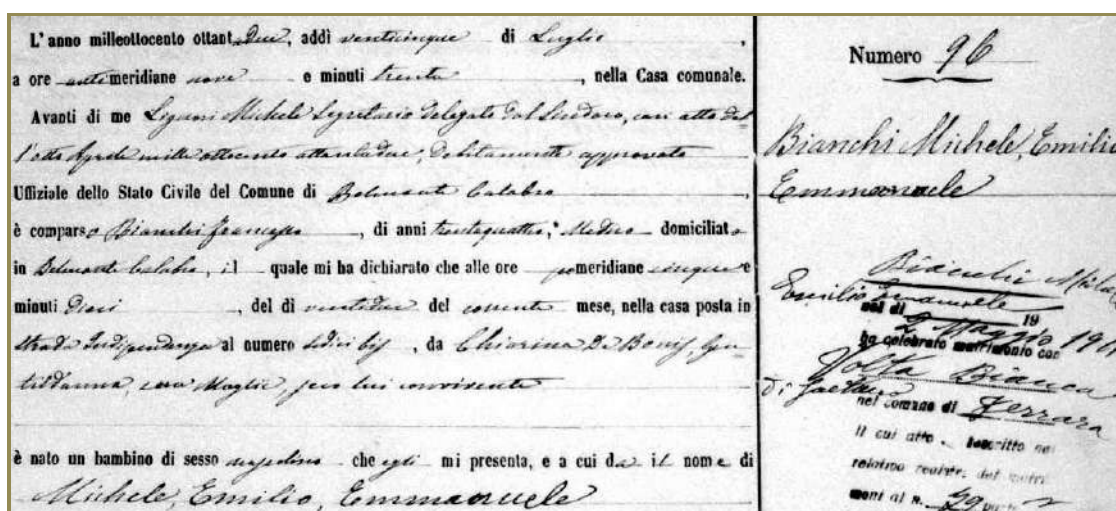 L'anno milleottocento ottantadue, addì venticinque di Luglio,
a ore antimeridiane nove e minuti trenta, nella Casa comunale.
Avanti di me Liguori Michele Segretario delegato dal Sindaco, con atto del-
l'otto Aprile mille ottocento ottantadue, debitamente approvato
Uffiziale dello Stato Civile del Comune di Belmonte Calabro,
è comparso Bianchi Francesco, di anni trentaquattro, Medico domiciliato
in Belmonte Calabro, il quale mi ha dichiarato che alle ore pomeridiane cinque e
minuti dieci, del dì ventidue del corrente mese, nella casa posta in
strada Indipendenza al numero sedici bis, da Chiarina De Bonis, Gen-
tildonna, sua Moglie, seco lui convivente
è nato un bambino di sesso mascolino che egli mi presenta, e a cui da il nome di
Michele, Emilio, Emmanuele
Numero 96
Bianchi Michele, Emilio
Emmanuele
Bianchi
Emilio Emanuele
nel dì 19
2 Maggio
ha celebrato matrimonio con
Volta Bianca
di Gaetano
nel comune di Ferrara
Il cui atto iscritto nel
relativo registr. dei matri
moni al n. 29 parte